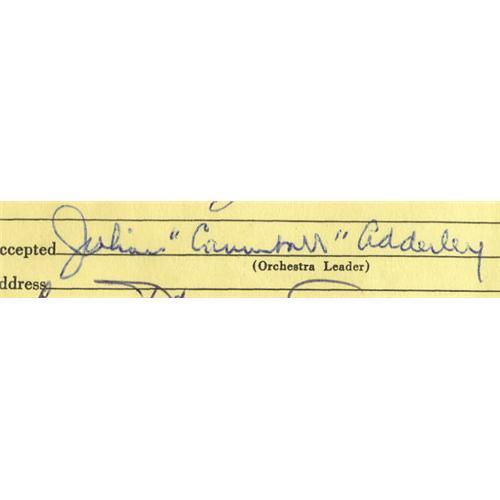 ccepted Julian "Cannonball" Adderley
(Orchestra Leader)
ddress